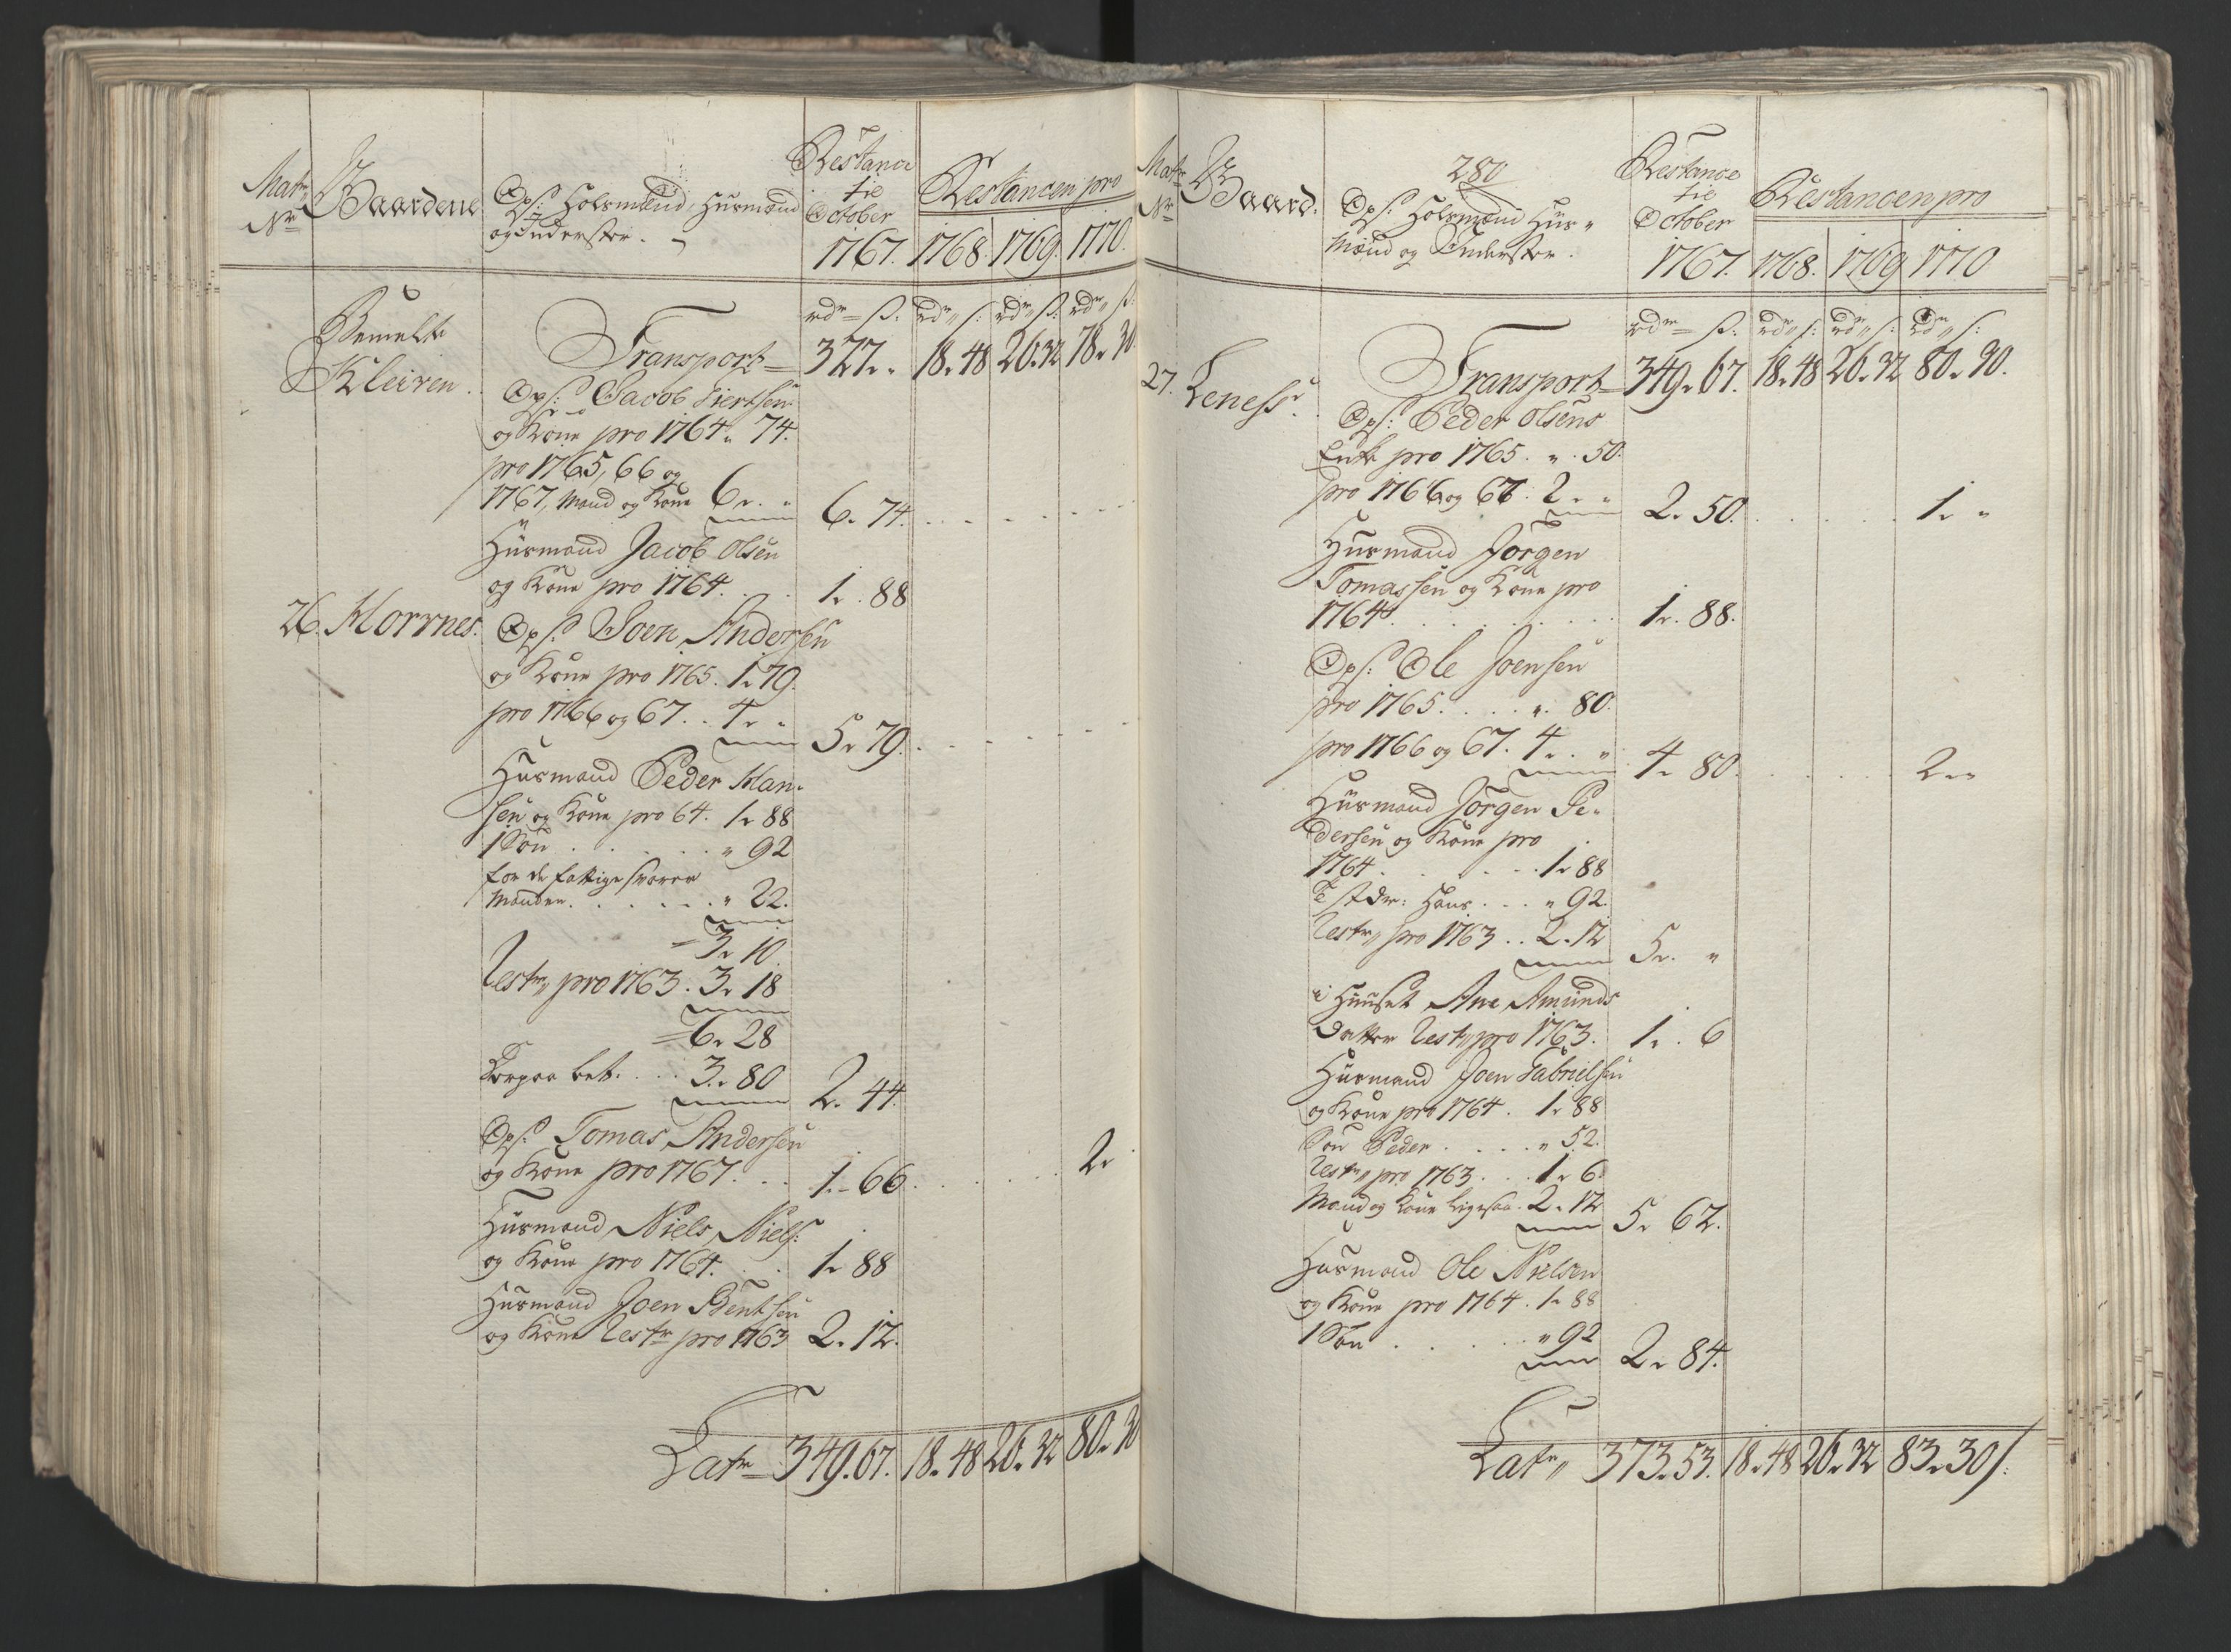 Matr: Nr
Gaardene
Ops: Holsmænd, Husmænd
og Inderster.
Restance
til
October
1767.
Restancen pro
1768. 1769. 1770.
rdr ß: rdr ß: rdr ß: rdr ß:
Bemelte
Kleiven.
Transport 327 „ „ 18 „ 48 26. 32 78 „ 30
Ops: Jacob Siertsen
og Kone pro 1764 „ 74.
pro 1765, 66 og
1767, Mand og Kone 6 „ „ 6 „ 74.
Husmand Jacob Olsen
og Kone pro 1764. 1 „ 88
26. Horrnes.
Ops: Joen Andersen
og Kone pro 1765. 1 „ 79.
pro 1766 og 67. 4 „ „ 5 „ 79.
Husmand Peder Han-
sen og Kone pro 64. 1 „ 88
1 Søn „ 92
for de fattige svarer
Manden „ 22.
3 „ 10
Restr „ pro 1763. 3 „ 18
6 „ 28
Herpaa bet. 3 „ 80 2 „ 44.
Ops: Tomas Andersen
og Kone pro 1767. 1 „ 66. 2 „
Husmand Niels Niels:
og Kone pro 1764. 1 „ 88
Husmand Joen Bentsen
og Kone Restr pro 1763 2 „ 12.
Latr 349. 67. 18 „ 48 26 „ 32 80 „ 30
Matr Nr
Gaard.
280
Ops: Holsmænd Hus-
Mænd og Inderster.
Restance
til
October
1767.
Restancen pro
1768. 1769 1770
rdr ß: rdr ß: rdr ß: rdr ß:
27. Leness:
Transport 349 „ 67. 18 „ 48 26 „ 32 80 „ 30.
Ops: Peder Olsens
Enke pro 1765. „ 50.
pro 1766 og 67. 2 „ „ 2 „ 50. 1 „ „
Husmand Jørgen
Tomassen og Kone pro
1764. 1 „ 88.
Ops: Ole Joensen
pro 1765. „ 80.
pro 1766 og 67. 4 „ „ 4 „ 80. 2 „ „
Husmand Jørgen Pe-
dersen og Kone pro
1764 1 „ 88
Hans „ 92.
Restr „ pro 1763 2 „ 12 5 „ „
i Huuset Ane Amunds
Datter Restr pro 1763. 1 „ 6
Husmand Joen Gabrielsen
og Kone pro 1764. 1 „ 88
Søn Peder „ 52.
Restr „ pro 1763 1 „ 6.
Mand og Kone ligesaa. 2 „ 12 5 „ 62.
Husmand Ole Nielsen
og Kone pro 1764. 1 „ 88
1 Søn „ 92 2 „ 84.
Latr „ 373 „ 53. 18 „ 48 26 „ 32 83 „ 30 ß: